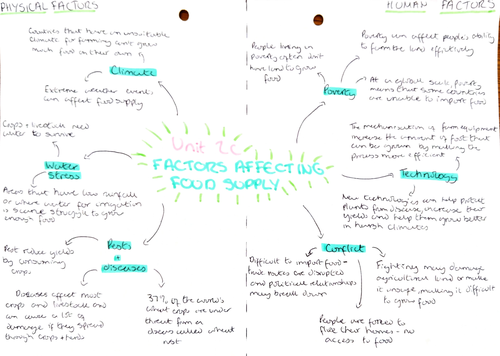 PHYSICAL FACTORS
HUMAN FACTORS
Countries that have an unsuitable
climate for farming can't grow
much food on their own
Climate
Extreme weather events
can affect food supply
Crops + livestock need
water to survive
Water
Stress
Areas that have low rainfall
or where water for irrigation
is scarce struggle to grow
enough food
Pests
+
diseases
Pest reduce yields
by consuming
crops
Diseases affect most
crops and livestock and
can cause a lot of
damage if they spread
through crops + herds
37% of the world's
wheat crops are under
threat from a
disease called wheat
rust
Unit 2c
FACTORS AFFECTING
FOOD SUPPLY
People living in
poverty often don't
have land to grow
food
Poverty
Poverty can affect people's ability
to farm the land effectively
At a global scale, poverty
means that some countries
are unable to import food
The mechanisation of farm equipment
increase the amount of food that
can be grown by making the
process more efficient
Technology
New technologies can help protect
plants from disease, increase their
yields and help them grow better
in harsh climates
Conflict
Difficult to import food -
trade routes are disrupted
and political relationships
may break down
Fighting may damage
agricultural land or make
it unsafe, making it difficult
to grow food
People are forced to
flee their homes - no
access to food